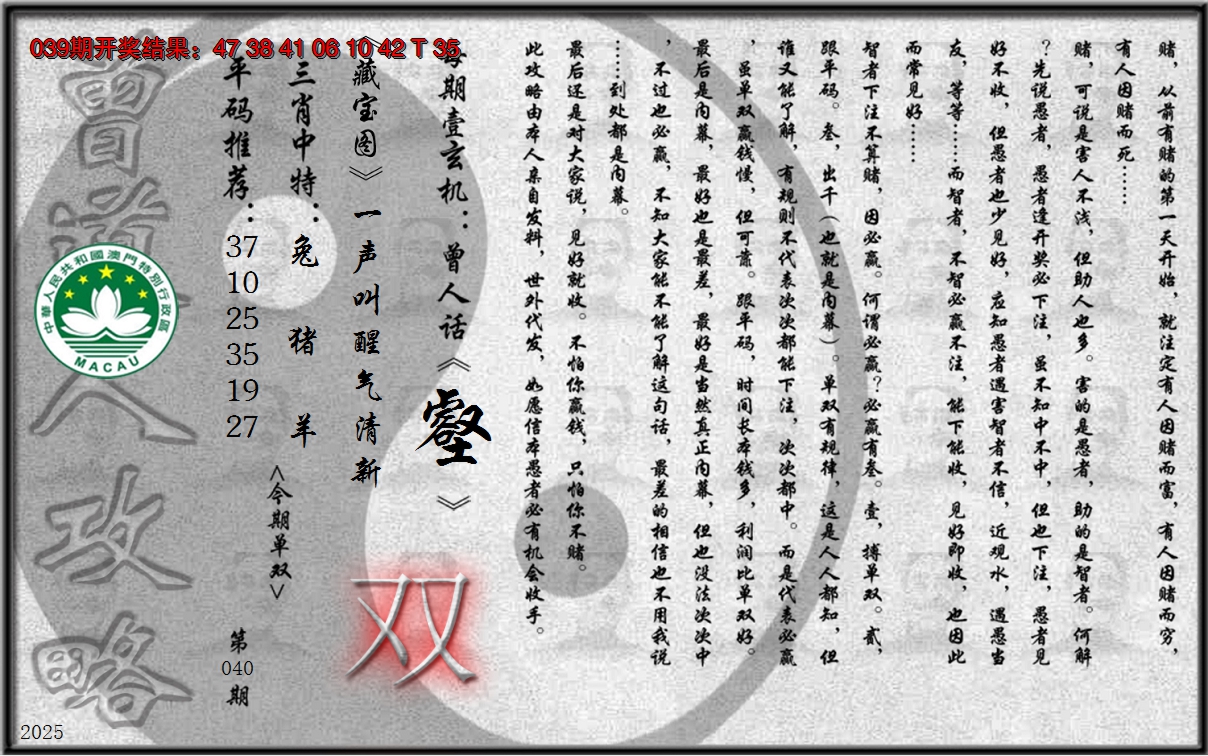 039期开奖结果：47 38 41 06 10 42 T 35
赌，从前有赌的第一天开始，就注定有人因赌而富，有人因赌而穷，
有人因赌而死……
赌，可说是害人不浅，但助人也多。害的是愚者，助的是智者。何解
？先说愚者，愚者逢开奖必下注，虽不知中不中，但也下注，愚者见
好不收，但愚者也少见好，应知愚者遇害智者不信，近观水，遇愚当
友，等等……而智者，不智必赢不注，能下能收，见好即收，也因此
而常见好……
智者下注不算赌，因必赢。何谓必赢？必赢有叁。壹，搏单双。贰，
跟平码。叁，出千（也就是内幕）。单双有规律，这是人人都知，但
谁又能了解，有规则不代表次次都能下注，次次都中。而是代表必赢
，虽单双赢钱慢，但可靠。跟平码，时间长本钱多，利润比单双好。
最后是内幕，最好也是最差，最好是当然真正内幕，但也没法次次中
，不过也必赢，不知大家能不能了解这句话，最差的相信也不用我说
……到处都是内幕。
最后还是对大家说，见好就收。不怕你赢钱，只怕你不赌。
此攻略由本人亲自发料，世外代发，如愿信本愚者必有机会收手。
每期壹玄机：曾人话《壑》
《藏宝图》一声叫醒气清新
双
三肖中特：兔 猪 羊
<今期单双>
平码推荐：
37
10
25
35
19
27
第
040
期
曾道人攻略
中華人民共和國澳門特別行政區
MACAU
2025